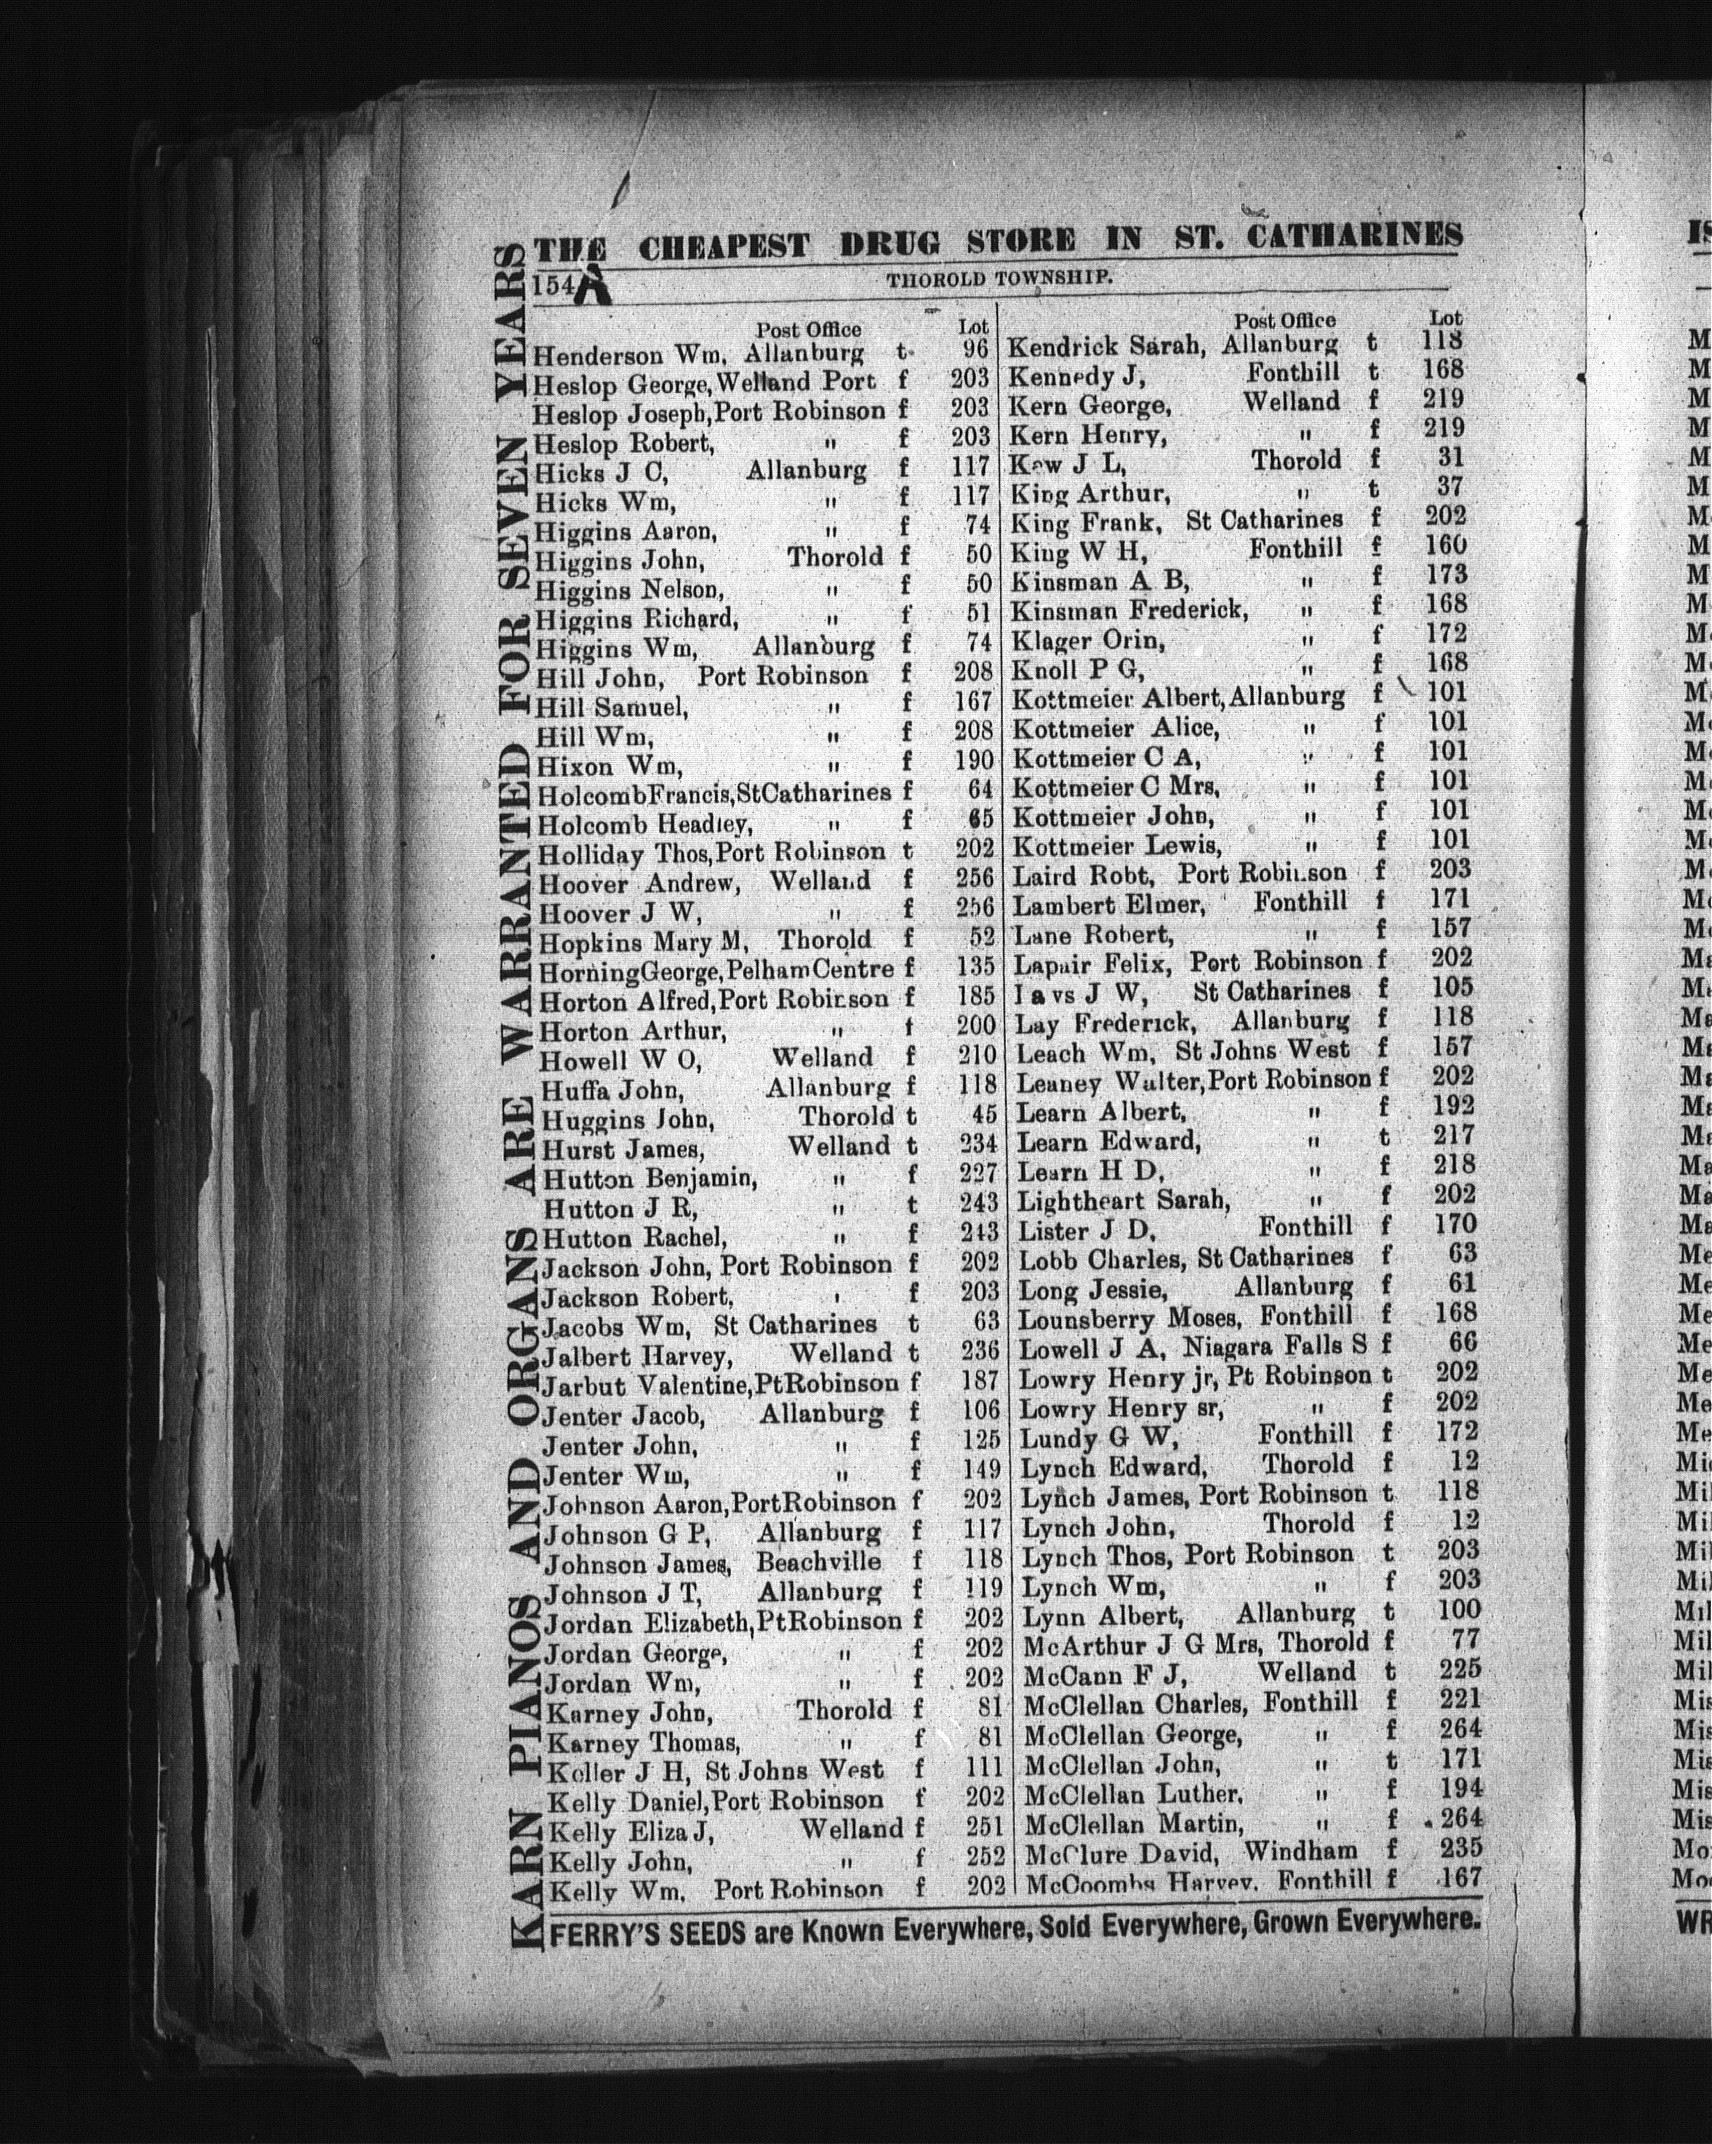 THE CHEAPEST DRUG STORE IN ST. CATHARINES
154 A
THOROLD TOWNSHIP.
KARN PIANOS AND ORGANS ARE WARRANTED FOR SEVEN YEARS
Post Office Lot
Henderson Wm, Allanburg t 96
Heslop George, Welland Port f 203
Heslop Joseph, Port Robinson f 203
Heslop Robert, " f 203
Hicks J C, Allanburg f 117
Hicks Wm, " f 117
Higgins Aaron, " f 74
Higgins John, Thorold f 50
Higgins Nelson, " f 50
Higgins Richard, " f 51
Higgins Wm, Allanburg f 74
Hill John, Port Robinson f 208
Hill Samuel, " f 167
Hill Wm, " f 208
Hixon Wm, " f 190
Holcomb Francis, St Catharines f 64
Holcomb Headley, " f 65
Holliday Thos, Port Robinson t 202
Hoover Andrew, Welland f 256
Hoover J W, " f 256
Hopkins Mary M, Thorold f 52
Horning George, Pelham Centre f 135
Horton Alfred, Port Robinson f 185
Horton Arthur, " f 200
Howell W O, Welland f 210
Huffa John, Allanburg f 118
Huggins John, Thorold t 45
Hurst James, Welland t 234
Hutton Benjamin, " f 227
Hutton J R, " t 243
Hutton Rachel, " f 243
Jackson John, Port Robinson f 202
Jackson Robert, ' f 203
Jacobs Wm, St Catharines t 63
Jalbert Harvey, Welland t 236
Jarbut Valentine, Pt Robinson f 187
Jenter Jacob, Allanburg f 106
Jenter John, " f 125
Jenter Wm, " f 149
Johnson Aaron, Port Robinson f 202
Johnson G P, Allanburg f 117
Johnson James, Beachville f 118
Johnson J T, Allanburg f 119
Jordan Elizabeth, Pt Robinson f 202
Jordan George, " f 202
Jordan Wm, " f 202
Karney John, Thorold f 81
Karney Thomas, " f 81
Keller J H, St Johns West f 111
Kelly Daniel, Port Robinson f 202
Kelly Eliza J, Welland f 251
Kelly John, " f 252
Kelly Wm, Port Robinson f 202
Post Office Lot
Kendrick Sarah, Allanburg t 118
Kennedy J, Fonthill t 168
Kern George, Welland f 219
Kern Henry, " f 219
Kew J L, Thorold f 31
King Arthur, " t 37
King Frank, St Catharines f 202
King W H, Fonthill f 160
Kinsman A B, " f 173
Kinsman Frederick, " f 168
Klager Orin, " f 172
Knoll P G, " f 168
Kottmeier Albert, Allanburg f 101
Kottmeier Alice, " f 101
Kottmeier C A, " f 101
Kottmeier C Mrs, " f 101
Kottmeier John, " f 101
Kottmeier Lewis, " f 101
Laird Robt, Port Robinson f 203
Lambert Elmer, Fonthill f 171
Lane Robert, " f 157
Lapair Felix, Port Robinson f 202
Lavs J W, St Catharines f 105
Lay Frederick, Allanburg f 118
Leach Wm, St Johns West f 157
Leaney Walter, Port Robinson f 202
Learn Albert, " f 192
Learn Edward, " t 217
Learn H D, " f 218
Lightheart Sarah, " f 202
Lister J D, Fonthill f 170
Lobb Charles, St Catharines f 63
Long Jessie, Allanburg f 61
Lounsberry Moses, Fonthill f 168
Lowell J A, Niagara Falls S f 66
Lowry Henry jr, Pt Robinson t 202
Lowry Henry sr, " f 202
Lundy G W, Fonthill f 172
Lynch Edward, Thorold f 12
Lynch James, Port Robinson t 118
Lynch John, Thorold f 12
Lynch Thos, Port Robinson t 203
Lynch Wm, " f 203
Lynn Albert, Allanburg t 100
McArthur J G Mrs, Thorold f 77
McCann F J, Welland t 225
McClellan Charles, Fonthill f 221
McClellan George, " f 264
McClellan John, " t 171
McClellan Luther, " f 194
McClellan Martin, " f 264
McClure David, Windham f 235
McCoombs Harvey, Fonthill f 167
FERRY'S SEEDS are Known Everywhere, Sold Everywhere, Grown Everywhere.